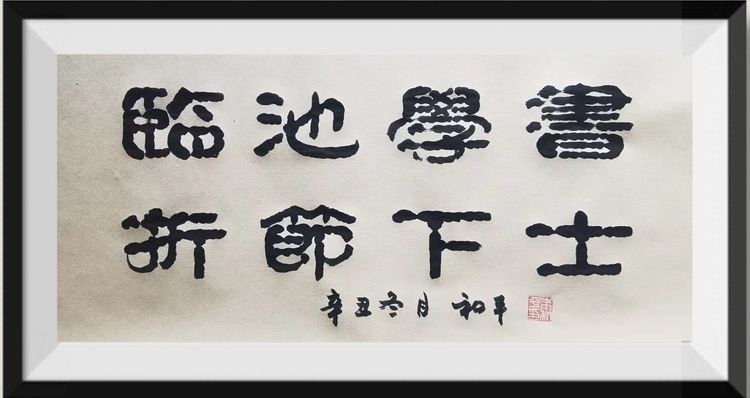 臨池學書
折節下士
辛丑冬月 和平